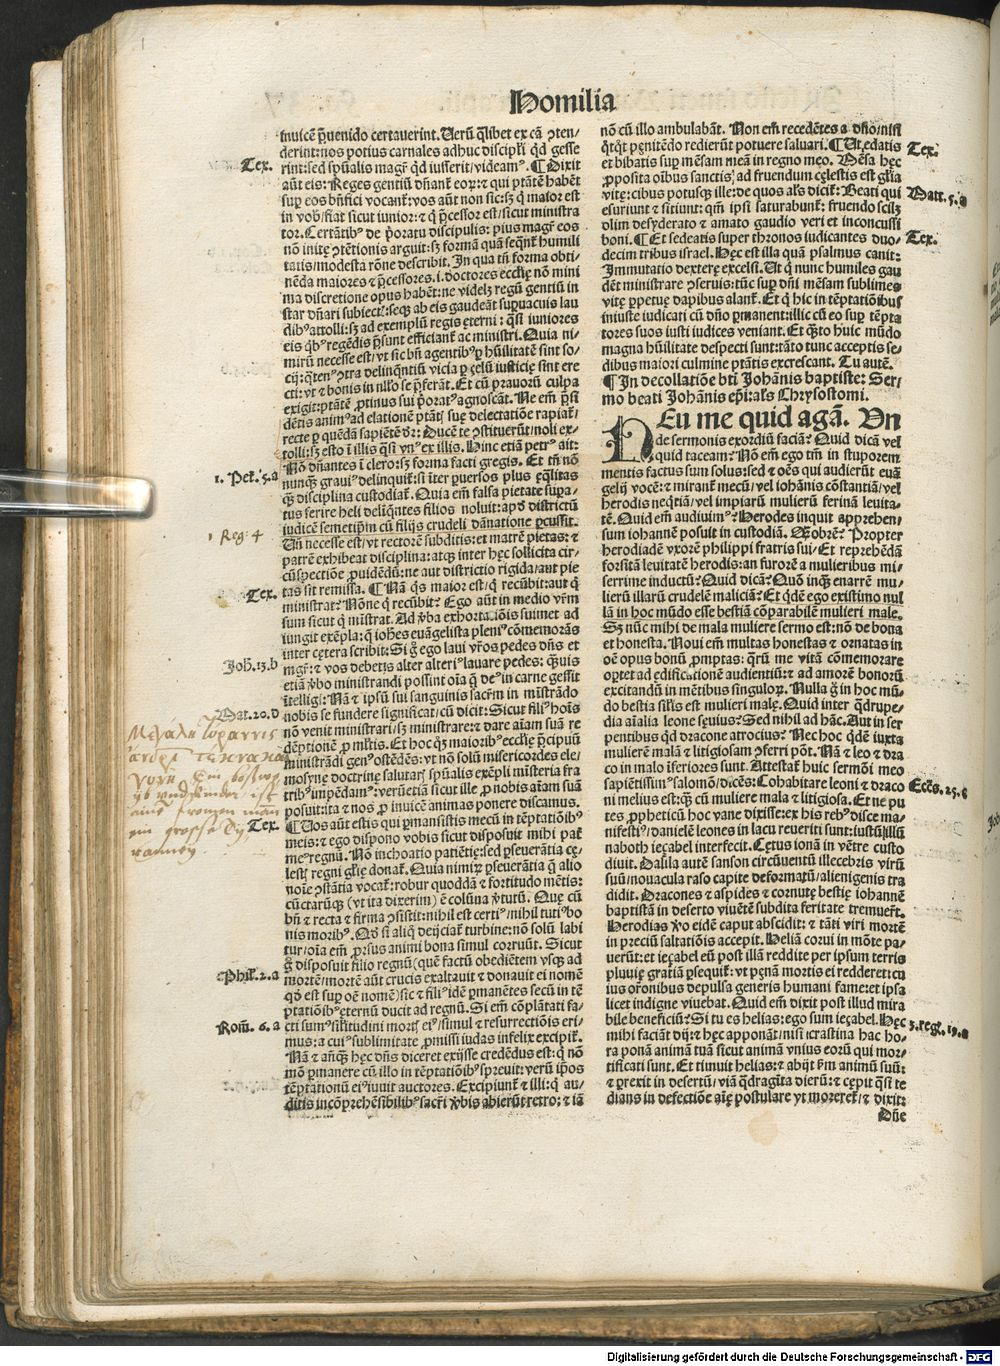 Homilia
inuicē p̄uenido certauerint. Verū q̄libet ex cā ꝯten/
derint: nos potius carnales adhuc discipłi qd̄ gesse
rint: sed spūalis magr̄ qd̄ iusserit/videamꝰ. ¶ Dixit
Tex.
aūt eis: Reges gentiū dn̄ant̄ eorꝫ: ⁊ qui ptātē habēt
sup eos bn̄fici vocant̄: vos aūt non sic: sꝫ q̄ maior est
in vob̄/fiat sicut iunior: ⁊ q̄ p̄cessor est/sicut ministra
tor. Certātibꝰ de p̄oratu discipulis: pius magr̄ eos
nō inite ꝯtētionis arguit: sꝫ formā quā seqn̄t̄ humili
tatis/modesta rōne describit. In qua tn̄ forma obti/
nēda maiores ⁊ p̄cessores .i. doctores eccłie nō mini
ma discretione opus habēt: ne videlꝫ regū gentiū in
star dn̄ari subiect̄: seqꝫ ab eis gaudeāt supuacuis lau
dibꝰ attolli: sꝫ ad exemplū regis eterni: qͣsi iuniores
eis qͥbꝰ regēdis p̄sunt efficiant̄ ac ministri. Quia ni/
mirū necesse est/vt sic bn̄ agentibꝰ p hūilitatē sint so/
cij: qͣtenꝰ ꝯtra delinqn̄tiū vicia p ꝫelū iusticię sint ere
cti: vt ⁊ bonis in nłło se p̄ferāt. Et cū prauorū culpa
exigit: ptātē ꝓtinus sui p̄orat̄ agnoscāt. Ne em̄ p̄si
dētis animꝰ ad elationē ptāt̄ suę delectatiōe rapiat̄/
recte p quēdā sapiētē dr̄: Ducē te ꝯstituerūt/noli ex/
tolli: sꝫ esto ī illis qͣsi vnꝰ ex illis. Hinc etiā petrꝰ ait:
Nō dn̄antes ī clero: sꝫ forma facti gregis. Et tn̄ nō
1. Pet̄. 5. a
nunqꝫ grauiꝰ delinquit̄: si īter puersos plus ęq̄litas
qꝫ disciplina custodiat̄. Quia em̄ falsa pietate supa/
tus ferire heli delinq̄ntes filios noluit: apd̄ districtū
iudicē semetip̄m cū filijs crudeli dānatione pcussit.
1 Reg. 4
Un̄ necesse est/vt rectorē subditis: et matrē pietas: ⁊
patrē exhibeat disciplina: atqꝫ inter hęc sollicita cir/
cūspectiōe ꝓuidēdū: ne aut districtio rigida/aut pie
tas sit remissa. ¶ Nā qͥs maior est/q̄ recūbit: aut q̄
Tex.
ministrat? Nōne q̄ recūbit? Ego aūt in medio vr̄m
sum sicut q̄ mīstrat. Ad ꝟba exhortatōis suimet ad
iungit exēpla: q̄ ioh̄es euāgelista pleniꝰ cōmemorās
inter cętera scribit: Si g̊ ego laui vr̄os pedes dn̄s et
Joh̄. 13. b
mgr̄: ⁊ vos debetis alter alteriꝰ lauare pedes: qꝫuis
etiā ꝟbo ministrandi possint oīa q̄ deꝰ in carne gessit
ītelligi. Nā ⁊ ip̄sū sui sanguinis sacr̄m in mīstrādo
nobis se fundere significat/cū dicit: Sicut filiꝰ hoīs
Mat. 20. d
nō venit ministrari/sꝫ ministrare: ⁊ dare aīam suā re
dēptionē ꝓ mltis. Et hoc qͥsqꝫ maioribꝰ eccłię p̄cipuū
ministrādi genꝰ ostēdēs: vt nō solū misericordes ele/
mosynę doctrinę salutar̄/spūalis exēpli mīsteria fra
tribꝰ impēdamꝰ: verūetiā sicut ille ꝓ nobis aīam suā
posuit: ita ⁊ nos ꝓ inuicē animas ponere discamus.
Tex.
¶ Vos aūt estis qui pmansistis mecū in tēptatiōibꝰ
meis: ⁊ ego dispono vobis sicut disposuit mihi pat̄
meꝰ regnū. Nō inchoatio patiētię: sed pseuerātia cę/
lest̄ regni głię donat̄. Quia nimirꝫ pseuerātia q̄ alio
noīe ꝯstātia vocat̄: robur quoddā ⁊ fortitudo mētis:
cūctarūqꝫ (vt ita dixerim) ē colūna ꝟtutū. Que cū
bn̄ ⁊ recta ⁊ firma ꝯsistit: nihil est certiꝰ/nihil tutiꝰ bo
nis moribꝰ. Qd̄ si aliq̄ deijciat̄ turbine: nō solū labi
tur/oīa em̄ ꝓrsus animi bona simul corruūt. Sicut
g̊ disposuit filio regnū (quē factū obediētem vsqꝫ ad
mortē/mortē aūt crucis exaltauit ⁊ donauit ei nomē
Phil̄. 2. a
qd̄ est sup oē nomē) sic ⁊ filiꝰ idē pmanētes secū in tē
ptatiōibꝰ eternū ducit ad regnū. Si em̄ cōplātati fa/
cti sumꝰ sił̄itudini mort̄ eiꝰ/simul ⁊ resurrectiōis eri/
Rom̄. 6. a
mus: a cuiꝰ sublimitate ꝓmissi iudas infelix excipit̄.
Nā ⁊ añqꝫ hęc dn̄s diceret exijsse credēdus est: q̄ nō
mō pmanere cū illo in tēptatiōibꝰ spreuit: verū ip̄os
tēptationū eiꝰ iuuit auctores. Excipiunt̄ ⁊ illi: q̄ au/
ditis incōprehēsibilibꝰ sacr̄i ꝟbis abierūt retro: ⁊ iā
nō cū illo ambulabāt. Non em̄ recedētes a dn̄o/nisi
qͥtqͥt pn̄itēdo redierūt potuere saluari. ¶ Ut edatis
Tex.
et bibatis sup mēsam meā in regno meo. Mēsa hęc
ꝓposita oībus sanctis/ad fruendum cęlestis est głia
vitę: cibus potusqꝫ ille: de quos al̄s dicit̄: Beati qui
Matt. 5. a
esuriunt ⁊ sitiunt: qm̄ ipsi saturabunt̄: fruendo scil̄ꝫ
olim desyderato ⁊ amato gaudio veri et inconcussi
boni. ¶ Et sedeatis super thronos iudicantes duo/
Tex.
decim tribus israel. Hęc est illa quā psalmus canit:
Immutatio dexterę excelsi. Ut q̄ nunc humiles gau
dēt ministrare ꝯseruis: tūc sup dn̄i mēsam sublimes
vitę ppetuę dapibus alant̄. Et q̄ hic in tēptatiōibus
iniuste iudicati cū dn̄o pmanent: illic cū eo sup tēpta
tores suos iusti iudices veniant. Et qͣto huic mūdo
magna hūilitate despecti sunt: tāto tunc acceptis se/
dibus maiori culmine ptātis excrescant. Tu autē.
¶ In decollatiōe bti Johānis baptiste: Ser/
mo beati Johānis ep̄i: al̄s Chrysostomi.
HEu me quid agā. Vn
de sermonis exordiū faciā? Quid dicā vel
quid taceam? Nō em̄ ego tm̄ in stuporem
mentis factus sum solus: sed ⁊ oēs qui audierūt euā
gelij vocē: ⁊ mirant̄ mecū/vel iohānis cōstantiā/vel
herodis neq̄tiā/vel impiarū mulierū ferinā leuita/
tē. Quid em̄ audiuimꝰ? Herodes inquit apprehen/
sum iohannē posuit in custodiā. Qͣobrē? Propter
herodiadē vxorē philippi fratris sui/Et reprehēdā
forsitā leuitatē herodis: an furorē a mulieribus mi/
serrime inductū? Quid dicā? Quō inqꝫ enarrē mu/
lierū illarū crudelē maliciā? Et qd̄ē ego existimo nul
lā in hoc mūdo esse bestiā cōparabilē mulieri malę.
Sꝫ nūc mihi de mala muliere sermo est: nō de bona
et honesta. Noui em̄ multas honestas ⁊ ornatas in
oē opus bonū ꝓmptas: qͣrū me vitā cōmemorare
oꝑtet ad edificationē audientiū: ⁊ ad amorē bonorū
excitandū in mētibus singulorꝫ. Nulla g̊ in hoc mū/
do bestia siłis est mulieri malę. Quid inter qͣdrupe/
dia aīalia leone sęuius? Sed nihil ad hāc. Aut in ser
pentibus qd̄ dracone atrocius? Nec hoc qd̄ē iuxta
mulierē malā ⁊ litigiosam ꝯferri pōt. Nā ⁊ leo ⁊ dra
co in malo īferiores sunt. Attestat̄ huic sermōi meo
sapiētissimꝰ salomō/dicēs: Cohabitare leoni ⁊ draco
Eccs. 25. c
ni melius est: qꝫ cū muliere mala ⁊ litigiosa. Et ne pu
tes ꝓpheticū hoc vane dixisse: ex his rebꝰ disce ma/
nifesti/danielē leones in lacu reueriti sunt: iustū illū
naboth ieçabel interfecit. Cętus ionā in vētre custo
diuit. Dalila autē sanson circūuentū illecebris virū
suū/nouacula raso capite deformatū/alienigenis tra
didit. Dracones ⁊ aspides ⁊ cornutę bestię iohannē
baptistā in deserto viuētē subdita feritate tremuer̄t.
Herodias ꝟo eidē caput abscidit: ⁊ tāti viri mortē
in preciū saltatiōis accepit. Heliā corui in mōte pa/
uerūt: et ieçabel eū post illā reddite per ipsum terris
pluuię gratiā psequit̄: vt pęnā mortis ei redderet: cu
ius orōnibus depulsa generis humani fameret ipsa
licet indigne viuebat. Quid em̄ dixit post illud mira
bile beneficiū? Si tu es helias: ego sum ieçabel. Hęc
3. reḡ. 19. a
mihi faciāt dij: ⁊ hęc apponāt/nisi crastina hac ho/
ra ponā animā tuā sicut animā vnius eorū qui mor/
tificati sunt. Et timuit helias: ⁊ abijt p̄m animū suū:
⁊ ꝑrexit in desertū/viā qͣdragīta dierū: ⁊ cępit qͣsi te
dians in defectiōe aię postulare vt moreret̄/⁊ dixit:
Dn̄e
Digitalisierung gefördert durch die Deutsche Forschungsgemeinschaft - DFG